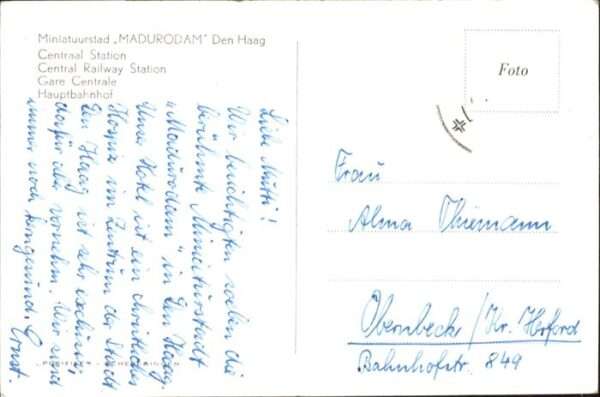 Miniatuurstad „MADURODAM" Den Haag
Centraal Station
Central Railway Station
Gare Centrale
Hauptbahnhof
Liebe Mutti!
Wir besichtigten soeben die
berühmte Miniaturstadt
„Madurodam" in Den Haag.
Unser Hotel ist ein christliches
Hospiz im Zentrum der Stadt
Den Haag ist sehr exclusiv,
dafür aber vornehm. Wir sind
immer noch kerngesund. Ernst.
Foto
Frau
Alma Thiemann
Obernbeck / Kr. Herford
Bahnhofstr. 849